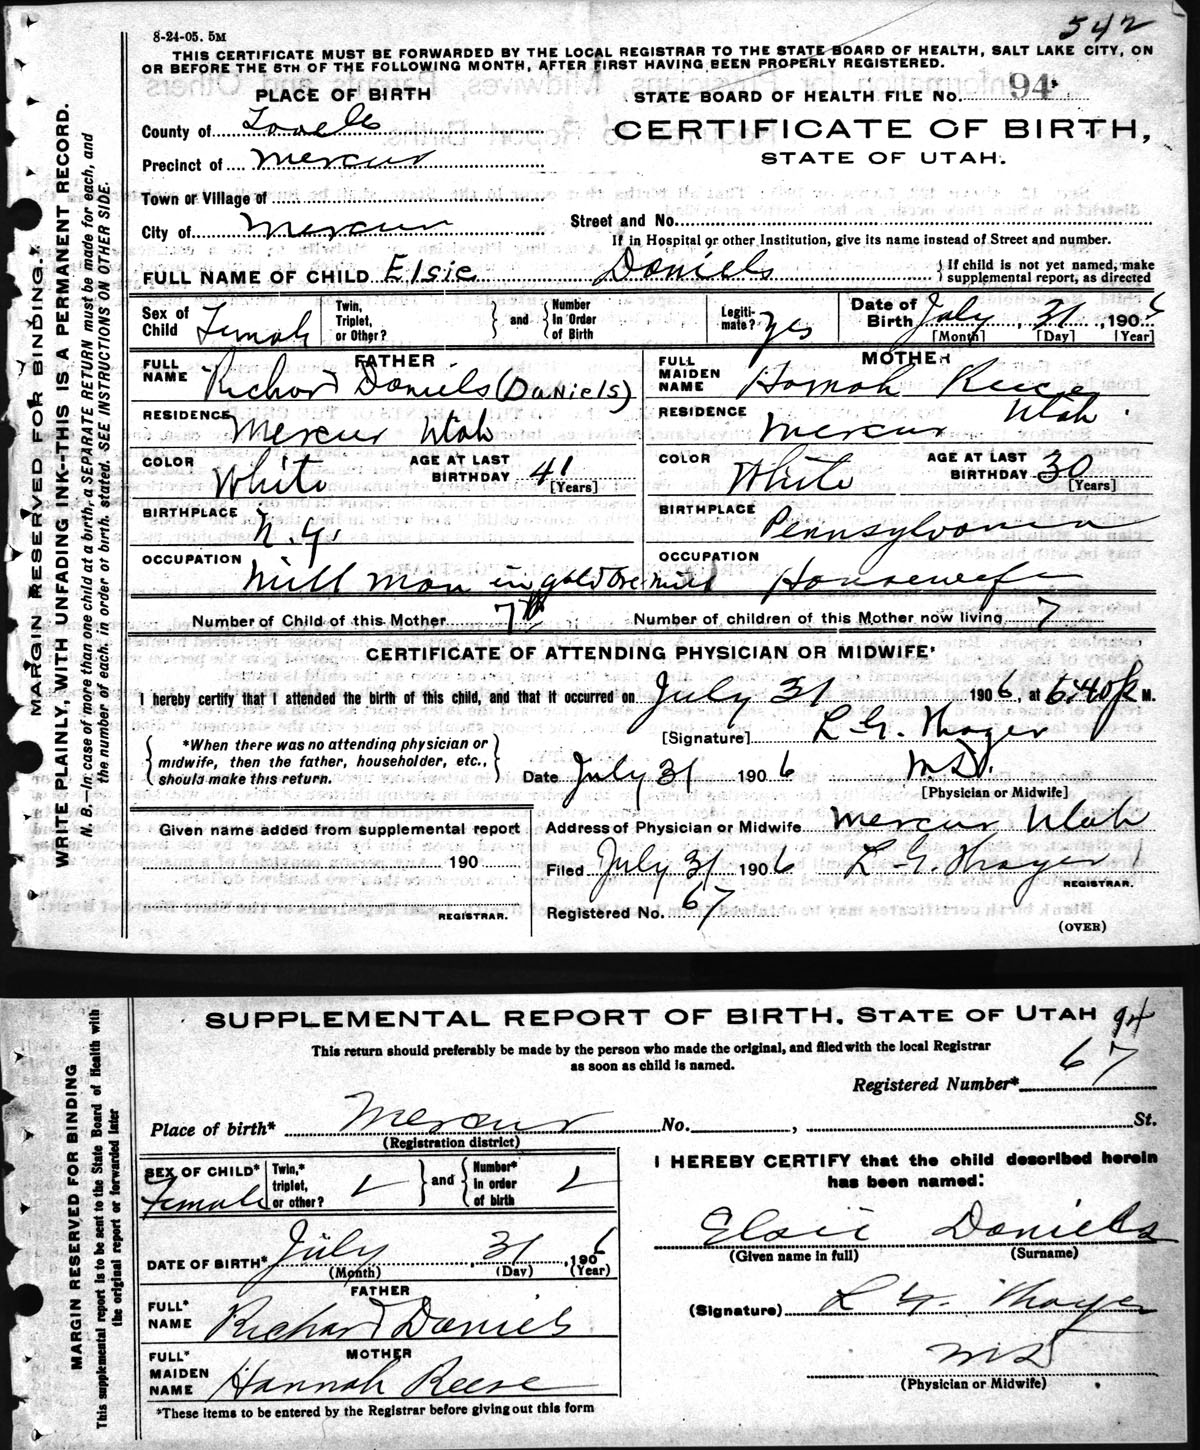 542
8-24-05. 5M
THIS CERTIFICATE MUST BE FORWARDED BY THE LOCAL REGISTRAR TO THE STATE BOARD OF HEALTH, SALT LAKE CITY, ON
OR BEFORE THE 5TH OF THE FOLLOWING MONTH, AFTER FIRST HAVING BEEN PROPERLY REGISTERED.
PLACE OF BIRTH
STATE BOARD OF HEALTH FILE No. 94
County of Tooele
CERTIFICATE OF BIRTH,
Precinct of Mercur
STATE OF UTAH.
Town or Village of
City of Mercur
Street and No.
If in Hospital or other Institution, give its name instead of Street and number.
FULL NAME OF CHILD Elsie Daniels
If child is not yet named, make
supplemental report, as directed
Sex of
Child Female
Twin,
Triplet,
or Other?
and
Number
In Order
of Birth
Legiti-
mate? Yes
Date of
Birth July 31, 1906
[Month] [Day] [Year]
FATHER
FULL
NAME Richard Daniels (DANIELS)
MOTHER
FULL
MAIDEN
NAME Hannah Reece
RESIDENCE
Mercur Utah
RESIDENCE
Mercur Utah
COLOR
White
AGE AT LAST
BIRTHDAY 41
[Years]
COLOR
White
AGE AT LAST
BIRTHDAY 30
[Years]
BIRTHPLACE
N. Y.
BIRTHPLACE
Pennsylvania
OCCUPATION
Mill man in gold ore mill
OCCUPATION
Housewife
Number of Child of this Mother 7th
Number of children of this Mother now living 7
CERTIFICATE OF ATTENDING PHYSICIAN OR MIDWIFE*
I hereby certify that I attended the birth of this child, and that it occurred on July 31 1906, at 6:40 P. M.
*When there was no attending physician or
midwife, then the father, householder, etc.,
should make this return.
[Signature] L. G. Thayer
Date July 31 1906 M.D.
[Physician or Midwife]
Given name added from supplemental report
190
REGISTRAR.
Address of Physician or Midwife Mercur Utah
Filed July 31 1906 L. G. Thayer
REGISTRAR.
Registered No. 67
(OVER)
MARGIN RESERVED FOR BINDING.
WRITE PLAINLY, WITH UNFADING INK--THIS IS A PERMANENT RECORD.
N. B.—In case of more than one child at a birth, a SEPARATE RETURN must be made for each, and
the number of each, in order of birth, stated. SEE INSTRUCTIONS ON OTHER SIDE.
SUPPLEMENTAL REPORT OF BIRTH. STATE OF UTAH 94
This return should preferably be made by the person who made the original, and filed with the local Registrar
as soon as child is named.
Registered Number* 67
Place of birth* Mercur No. , St.
(Registration district)
SEX OF CHILD*
Female
Twin,*
triplet,
or other?
and
Number*
in order
of birth
I HEREBY CERTIFY that the child described herein
has been named:
Elsie Daniels
(Given name in full) (Surname)
DATE OF BIRTH* July 31, 1906
(Month) (Day) (Year)
FATHER
FULL*
NAME Richard Daniels
(Signature) L. G. Thayer
MD
(Physician or Midwife)
MOTHER
FULL*
MAIDEN
NAME Hannah Reese
*These items to be entered by the Registrar before giving out this form
MARGIN RESERVED FOR BINDING
This supplemental report is to be sent to the State Board of Health with
the original report or forwarded later